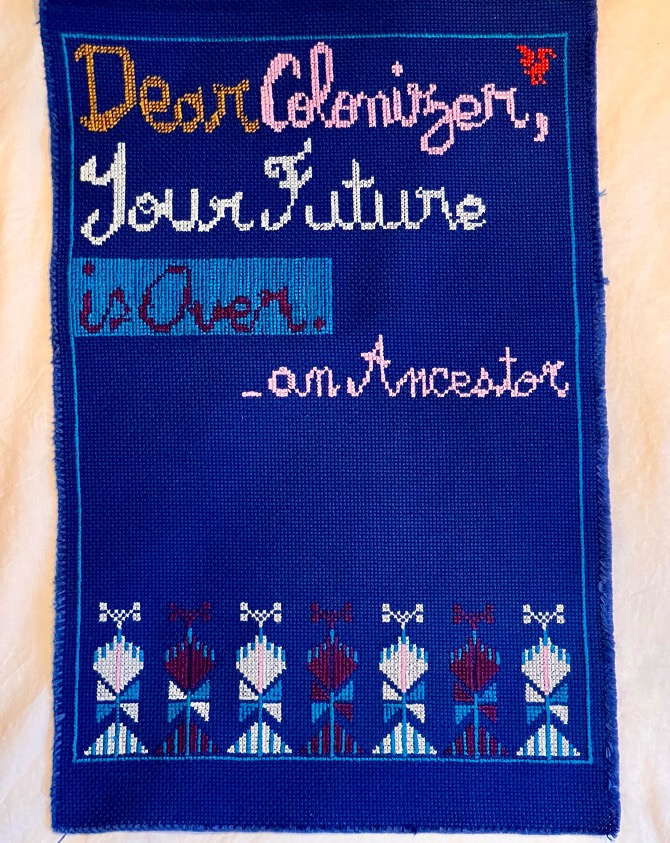 Dear Colonizer,
Your Future
is Over.
_an Ancestor